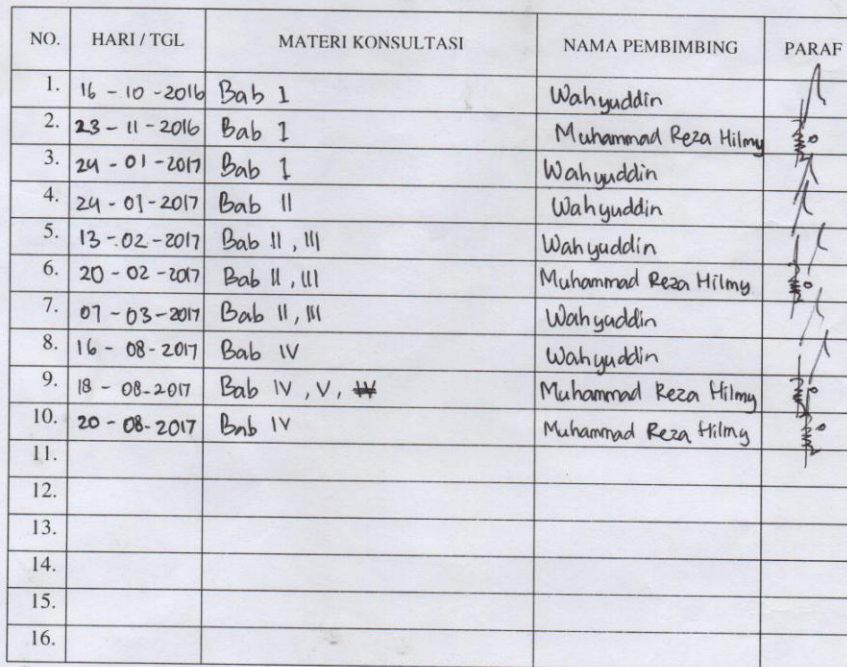 NO. HARI / TGL MATERI KONSULTASI NAMA PEMBIMBING PARAF
1. 16 - 10 - 2016 Bab I Wahyuddin
2. 23 - 11 - 2016 Bab I Muhammad Reza Hilmy
3. 24 - 01 - 2017 Bab I Wahyuddin
4. 24 - 01 - 2017 Bab II Wahyuddin
5. 13 - 02 - 2017 Bab II , III Wahyuddin
6. 20 - 02 - 2017 Bab II , III Muhammad Reza Hilmy
7. 07 - 03 - 2017 Bab II, III Wahyuddin
8. 16 - 08 - 2017 Bab IV Wahyuddin
9. 18 - 08 - 2017 Bab IV , V , Muhammad Reza Hilmy
10. 20 - 08 - 2017 Bab IV Muhammad Reza Hilmy
11.
12.
13.
14.
15.
16.